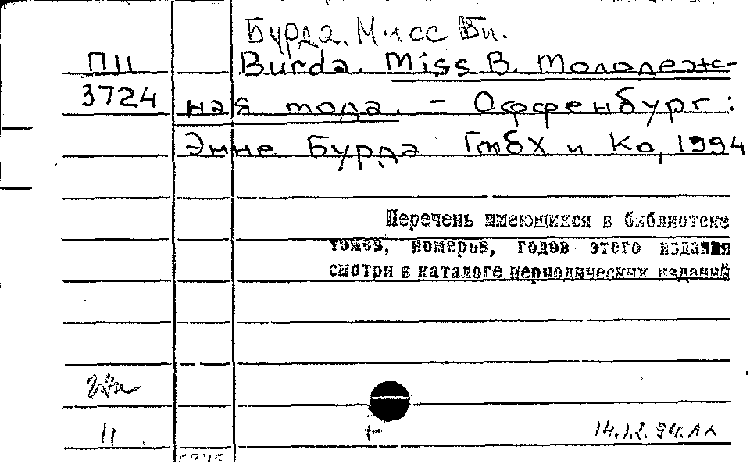 Бурда. Мисс Би.
ПII Burda. Miss B. Молодеж-
3724 ная мода. - Оффенбург:
Энне Бурда ГмбХ и Ко, 1994
Перечень имеющихся в библиотеке
томов, номеров, годов этого издания
смотри в каталоге периодических изданий
11. 14.12.94.